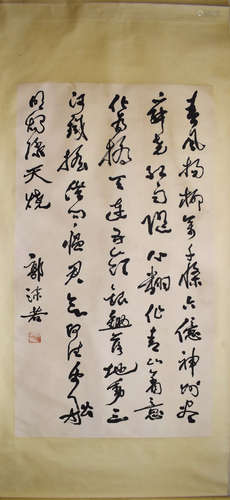 春风杨柳万千條六億神州尽
舜尧红雨随心翻作青山著意
化为桥天连五岭银锄落地动三
河铁臂摇借问瘟君欲何往纸船
明烛照天烧
郭沫若